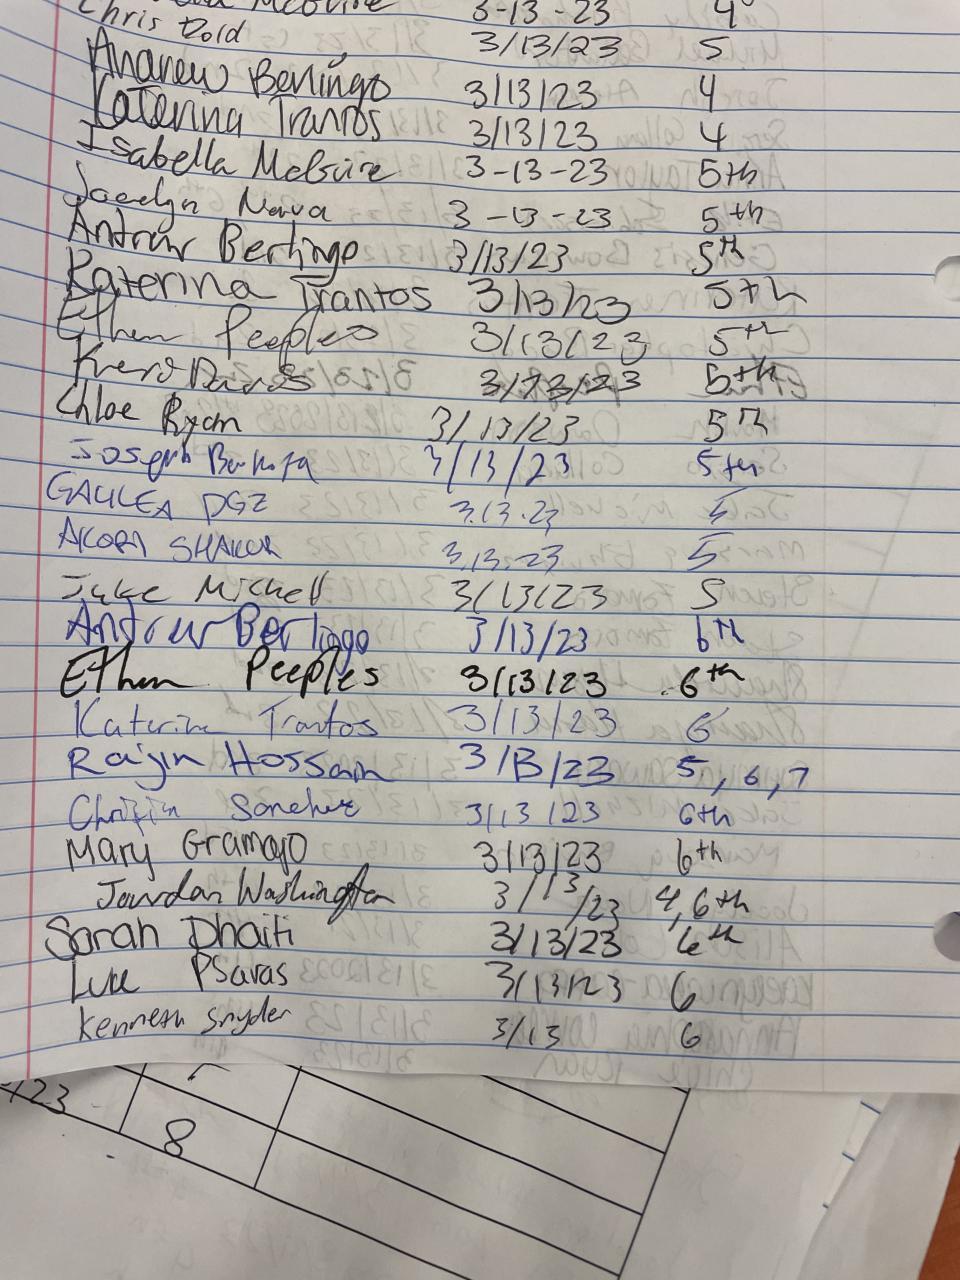 McGuire 3-13-23 4
Chris Dold 3/13/23 5
Andrew Berlingo 3/13/23 4
Katerina Trantos 3/13/23 4
Isabella McGuire 3-13-23 5th
Jocelyn Nava 3-13-23 5th
Andrew Berlingo 3/13/23 5th
Katerina Trantos 3/13/23 5th
Ethan Peeples 3/13/23 5th
3/13/23 5th
Chloe Ryan 3/13/23 5th
Joseph 3/13/23 5th
GALILEA DGZ 3.13.23 5
AKORA SHAKUR 3.13.23 5
Jake Michell 3/13/23 5
Andrew Berlingo 3/13/23 6th
Ethan Peeples 3/13/23 6th
Katerina Trantos 3/13/23 6
Raijin Hossain 3/13/23 5, 6, 7
Sanchez 3/13/23 6th
Mary Gramajo 3/13/23 6th
Jourdan Washington 3/13/23 4, 6th
Sarah Dhaiti 3/13/23 6th
Luke Psaras 3/13/23 6
Kenneth Snyder 3/13 6
23
8